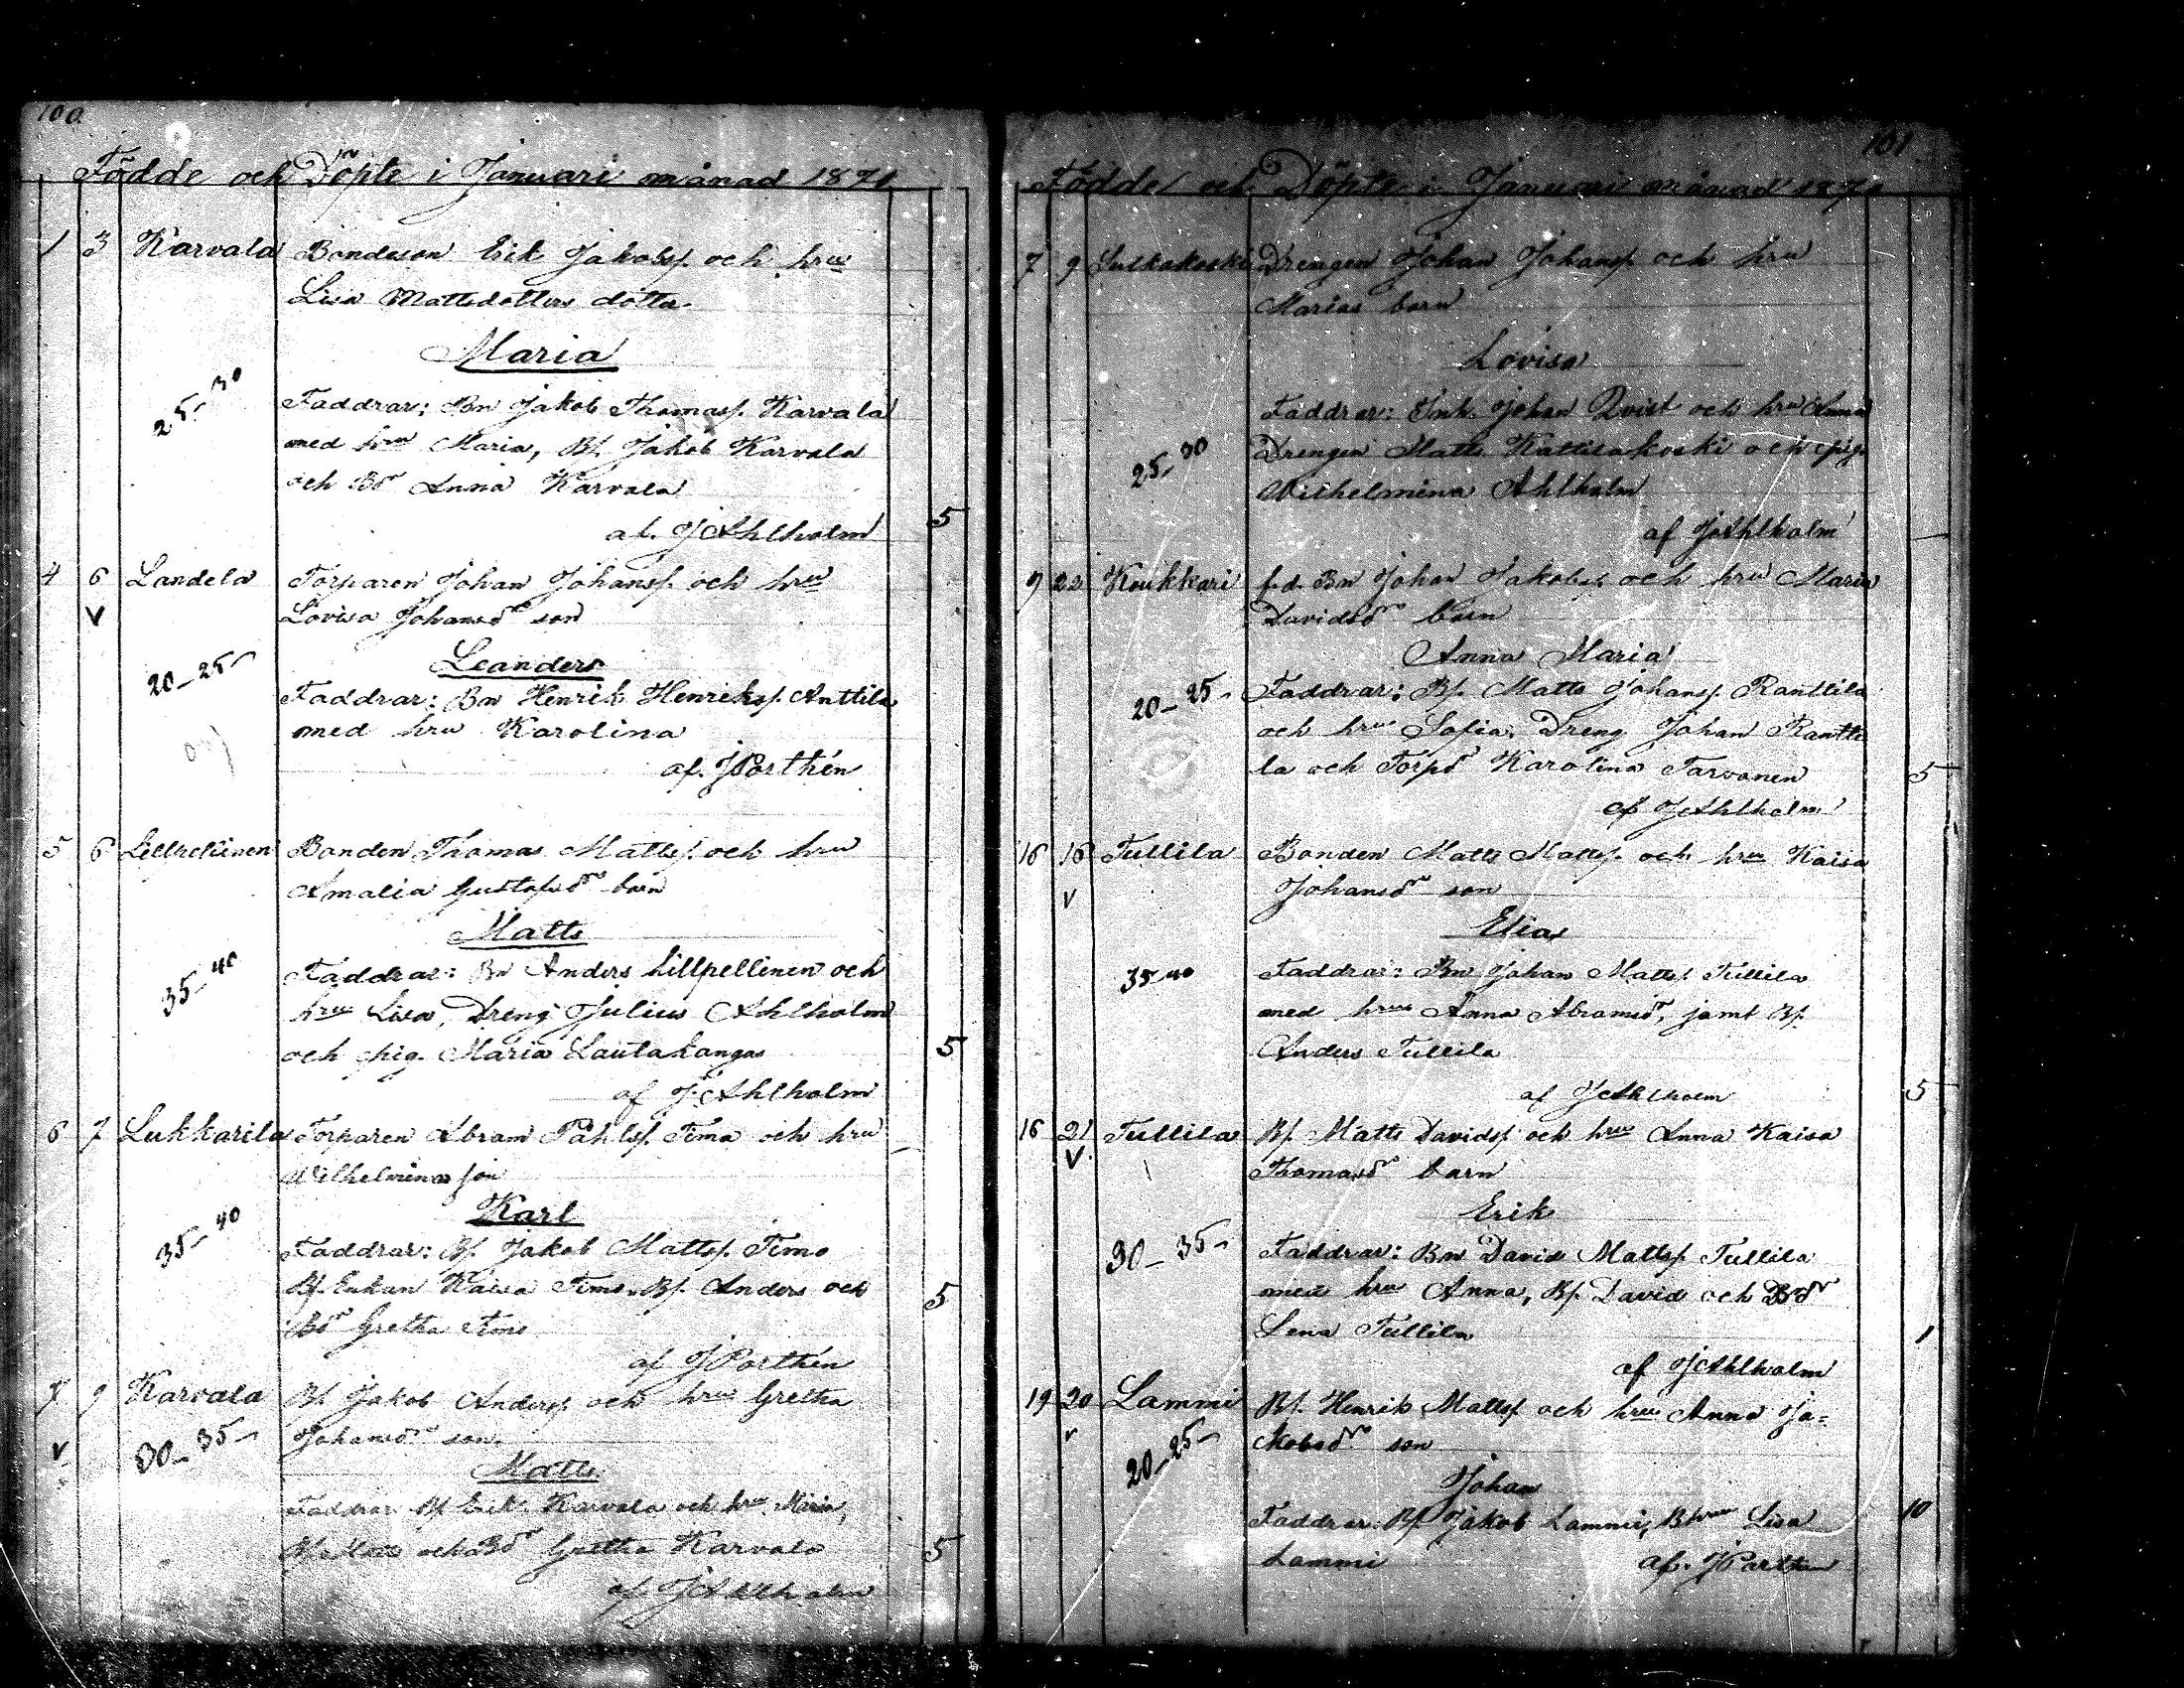 100
Födde och Döpte i Januari månad 1871
1 3 Karvala Bondeson Erik Jakobss. och hru
Lisa Mattsdotters dotter
Maria
25-30
Faddrar: Bn Jakob Thomass. Karvala
med hru Maria, Bs. Jakob Karvala
och Bdr Anna Karvala
af. J Ahlholm 5
4 6 Landela Torparen Johan Johanss. och hru
V Lovisa Johansdrs son
Leanders
20-25
Faddrar: Bn Henrik Henrikss. Anttila
med hru Karolina
af. J Porthén
5 6 Lillpellinen Bonden Thomas Matts. och hru
Amalia Gustafsdrs barn
Matts
35-40
Faddrar: Bn Anders Lillpellinen och
hru Lisa, Dreng Julius Ahlholm
och pig. Maria Lautakangas 5
af J. Ahlholm
6 7 Lukkarila Torparen Abram Påhlss. Timo och hru
Wilhelminas son
Karl
35-40
Faddrar: Bs. Jakob Mattss. Timo
Bs. Enkan Kaisa Timo, Bs. Anders och 5
Bdr Gretha Timo
af J Porthén
7 9 Karvala Bs. Jakob Anderss. och hru Gretha
V 30-35 Johansdrs son
Matts
Faddrar Bs. Erik Karvala och hru Maria,
och Bdr Gretha Karvala 5
af J Ahlholm
101
Födde och Döpte i Januari månad 1871
7 9 Sulkakoski Drengen Johan Johanss. och hru
Marias barn
Lovisa
Faddrar: Inh. Johan Qvist och hru Anna
25-30 Drengen Matts Kattilakoski och pig.
Wilhelmina Ahlholm
af J Ahlholm
9 22 Koukkari f.d. Bn Johan Jakobss. och hru Maria
Davidsdrs barn
Anna Maria
20-25 Faddrar: Bs. Matts Johanss. Ranttila
och hru Sofia, Dreng Johan Rantti
la och Torpdr Karolina Tarvonen 5
af J Ahlholm
16 16 Tullila Bonden Matts Mattss. och hru Kaisa
V Johansdrs son
Elias
35-40 Faddrar: Bn Johan Mattss. Tullila
med hru Anna Abramsdr, jemt Bs.
Anders Tullila
af J Ahlholm 5
16 21 Tullila Bs. Matts Davidss. och hru Anna Kaisa
V Thomasdrs barn
Erik
30-35 Faddrar: Bn David Mattss. Tullila
med hru Anna, Bs. David och Bdr
Lena Tullila 1
af J Ahlholm
19 20 Lammi Bs. Henrik Mattss. och hru Anna Ja=
v kobsdrs son
20-25
Johan
Faddrar: Bs. Jakob Lammi, Bhru Lisa 10
Lammi af. J Porthén